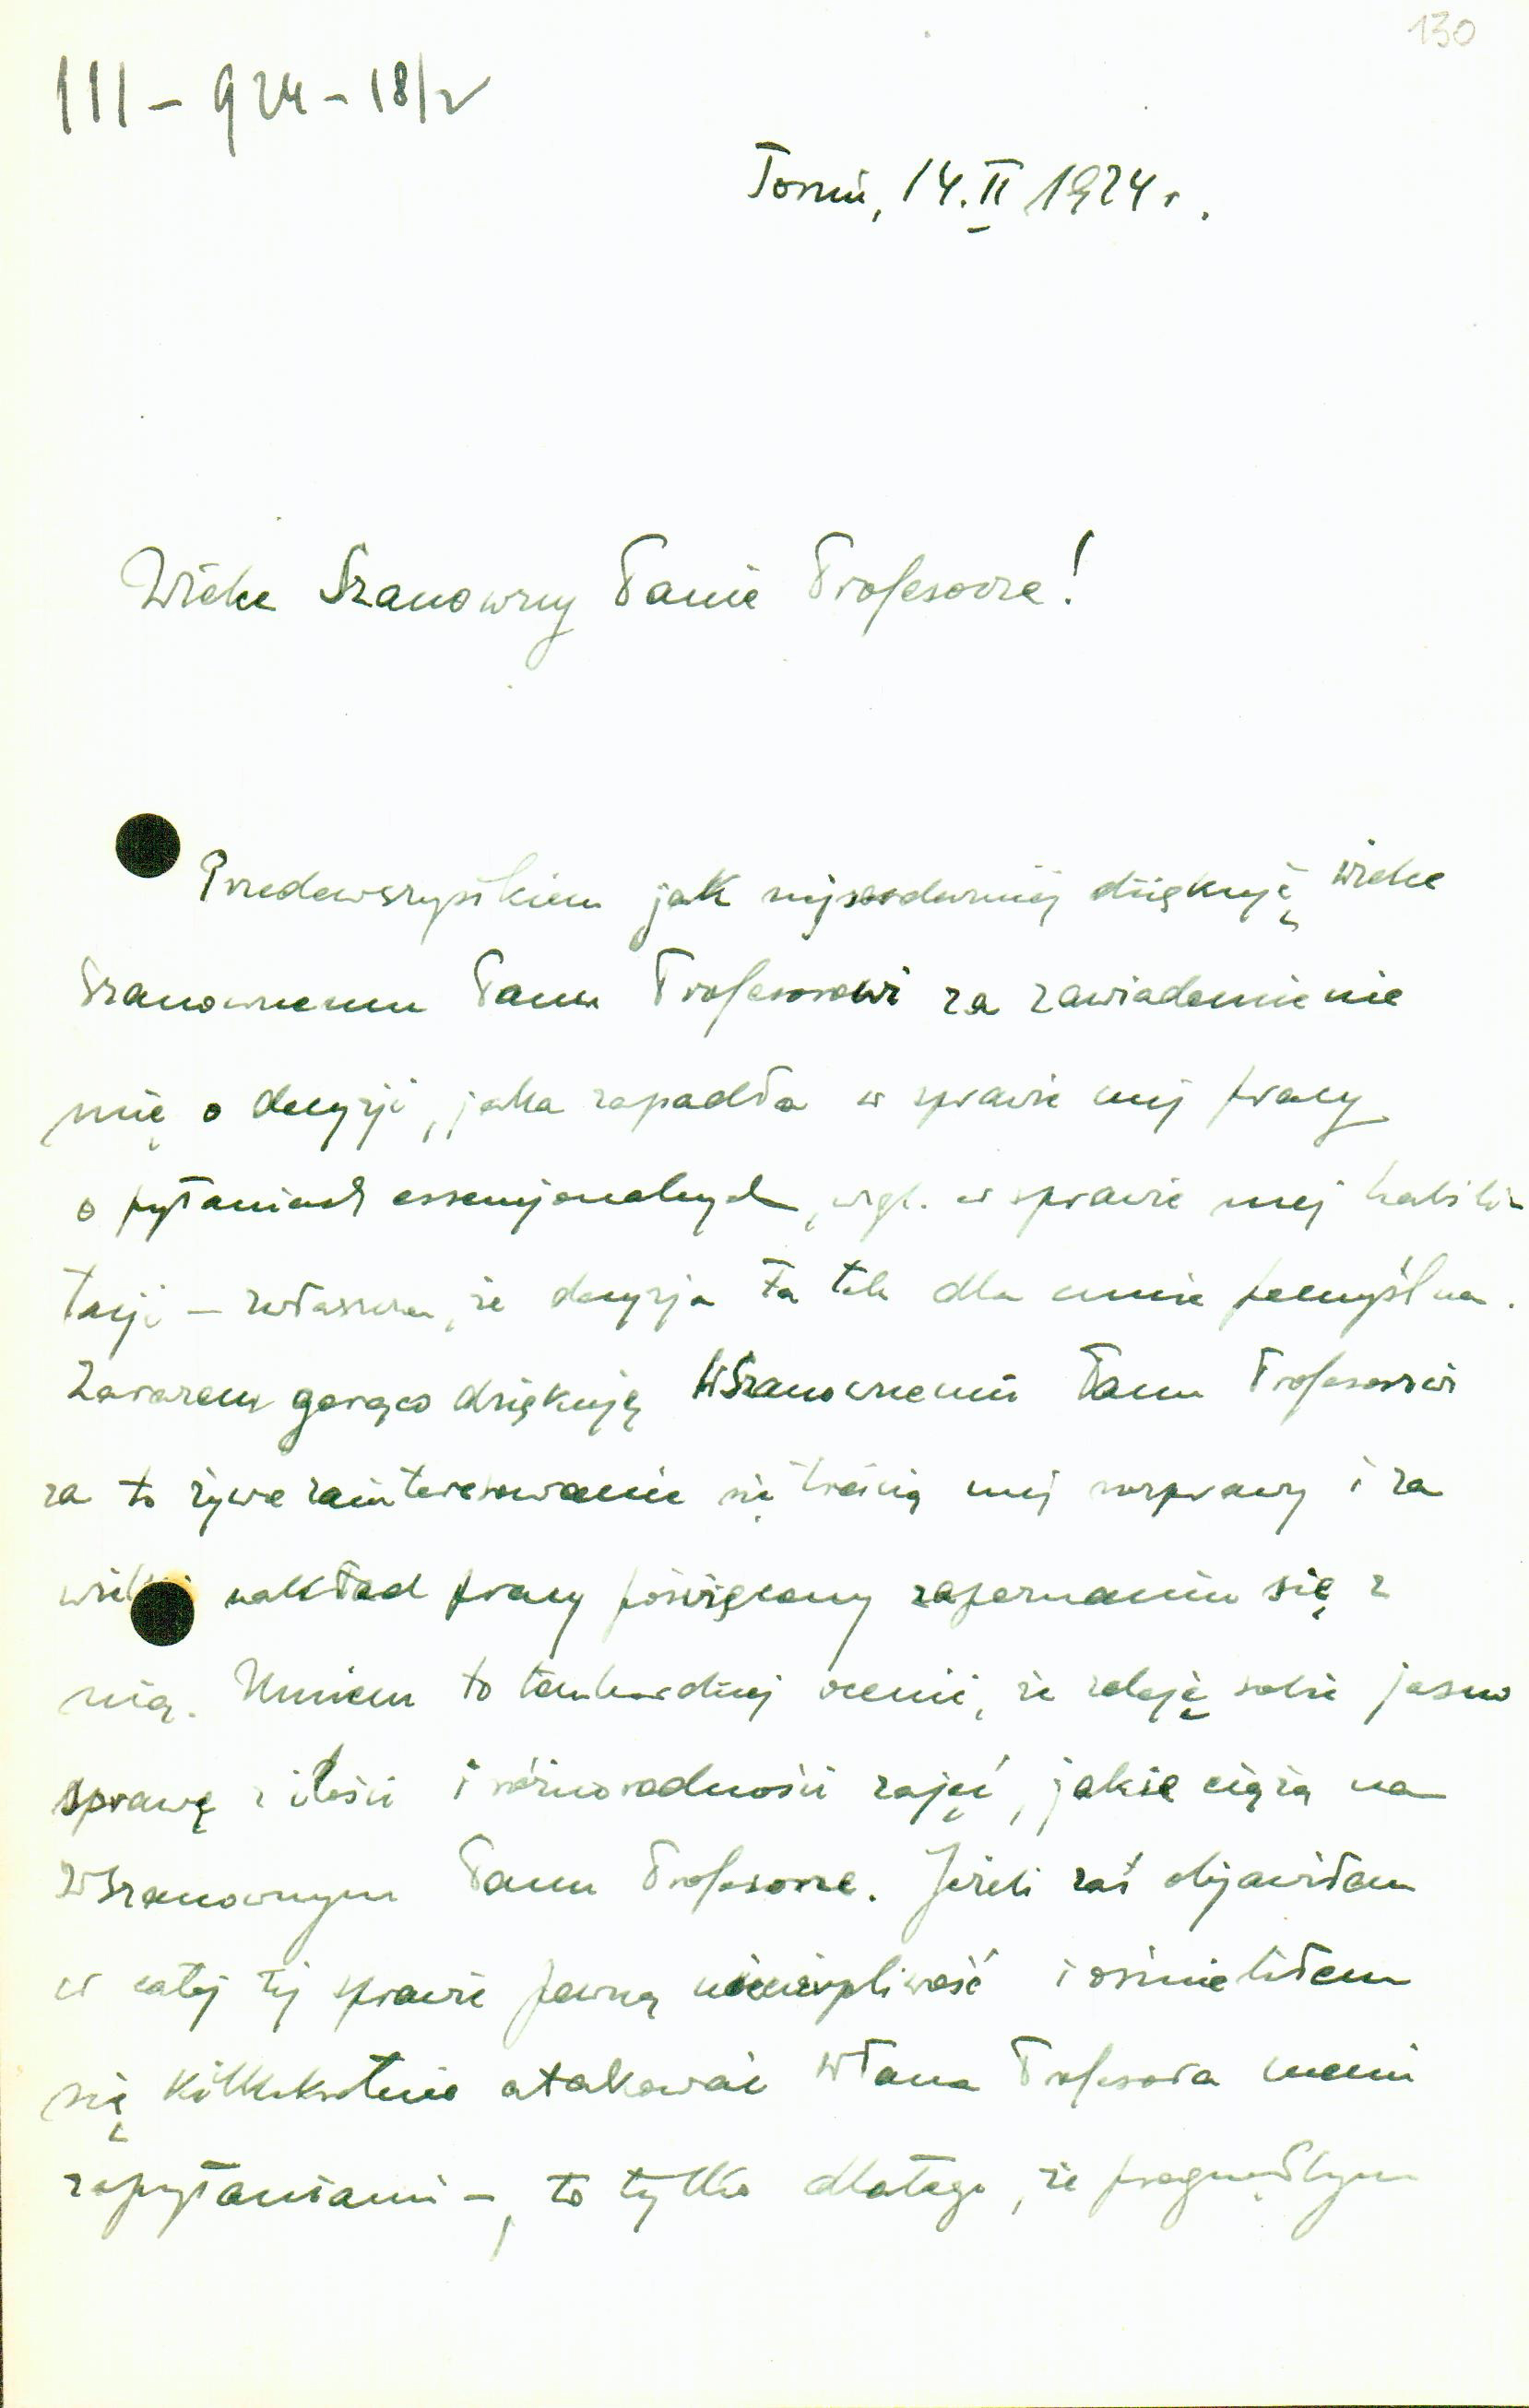 130
III – 924 – 18/2
Toruń, 14.II 1924 r.
Wielce Szanowny Panie Profesorze!
Przedewszystkiem jak najserdeczniej dziękuję Wielce
Szanownemu Panu Profesorowi za zawiadomienie
mię o decyzji, jaka zapadła w sprawie mej pracy
o pytaniach essencjonalnych, wzgl. w sprawie mej habili-
tacji – zwłaszcza, że decyzja ta tak dla mnie pomyślna.
Zarazem gorąco dziękuję WSzanownemu Panu Profesorowi
za to żywe zainteresowanie się treścią mej rozprawy i za
wielki nakład pracy poświęcony zapoznaniu się z
nią. Umiem to tembardziej ocenić, że zdaję sobie jasno
sprawę z ilości i różnorodności zajęć, jakie ciążą na
WSzanownym Panu Profesorze. Jeżeli zaś objawiłem
w całej tej sprawie pewną niecierpliwość i ośmieliłem
się kilkakrotnie atakować WPana Profesora memi
zapytaniami –, to tylko dlatego, że pragnąłbym